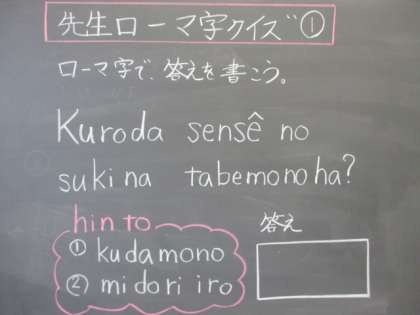 先生ローマ字クイズ①
ローマ字で、答えを書こう。
Kuroda sensê no
sukina tabemonoha?
hinto
① kudamono
② midori iro
答え